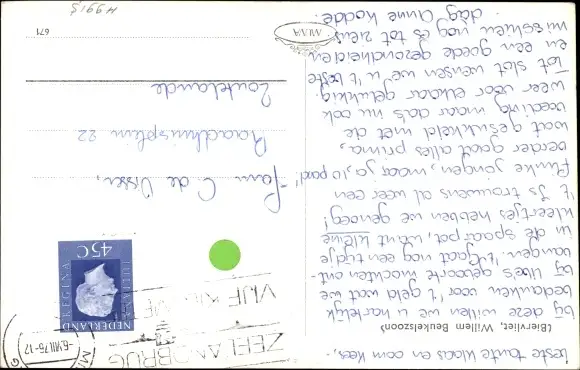 Beste tante Klaas en oom Kees,
(Biervliet, Willem Beukelszoon)
bij deze willen we u hartelijk
bedanken voor 't geld wat we
bij Uke's geboorte mochten ont-
vangen. 't Gaat nog een tijdje
in de spaarpot, want kleine
kleertjes hebben we genoeg!
't Is trouwens al weer een
flinke jongen, maar ja, 10 pond!
Verder gaat alles prima,
wat gesukkeld met de
voeding maar dat is nu ook
weer voor elkaar gelukkig.
Tot slot wensen we u 't beste
en een goede gezondheid en
misschien nog es tot ziens.
dàg Anne Kodde.
NEDERLAND
REGINA
JULIANA
45C
ZEELANDBRUG
VIJF KILOMETER
-6.VIII.75-17
Fam C de Visser,
Raadhuisplein 22
Zoutelande
MUVA
671
H 991,5